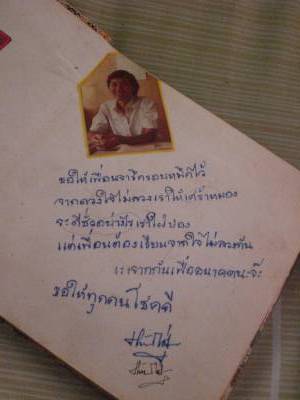 ขอให้เพื่อนจารึกรอบบทพิศไว้
จากดวงใจไม่ลวงเราให้เศร้าหมอง
จะดีชั่วอย่างไรเราใฝ่ปอง
แต่เพื่อนต้องเขียนจากใจไม่ลวงกัน
...จากกันเพื่ออนาคตนะจ๊ะ
ขอให้ทุกคนโชคดี